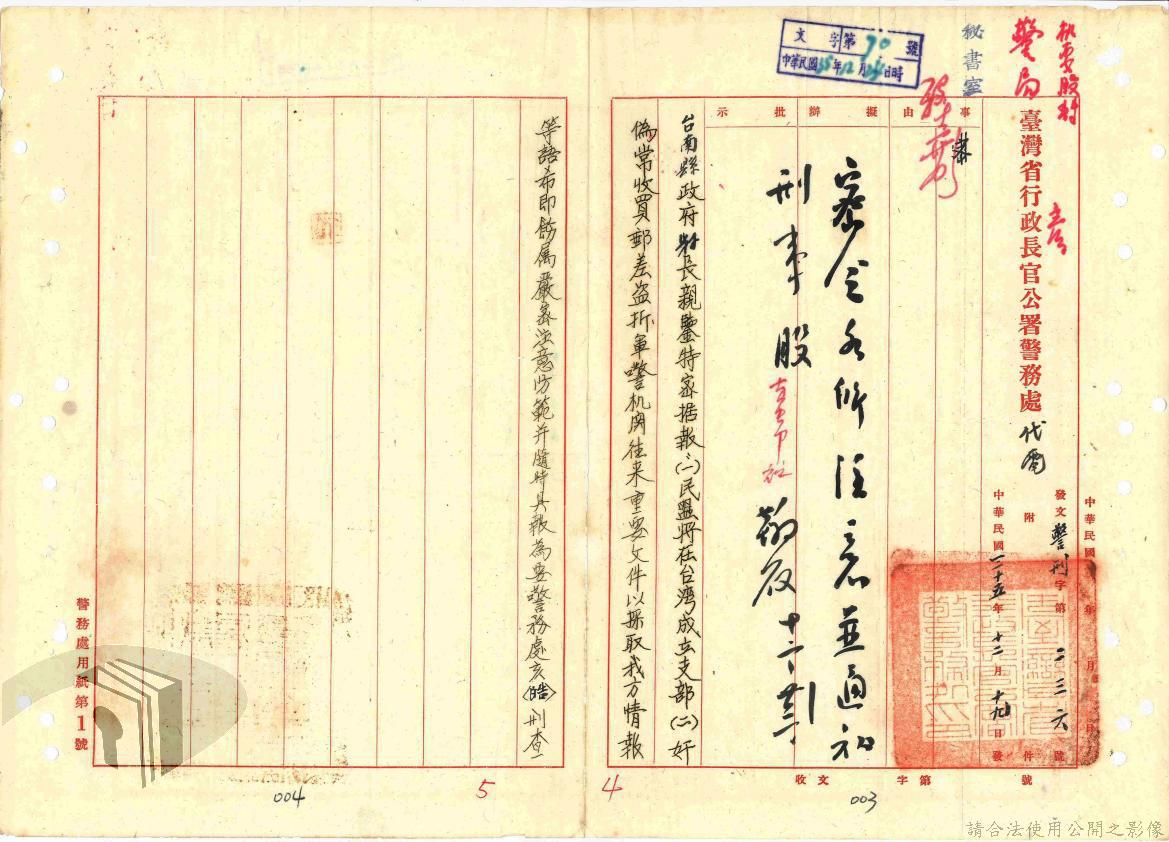 机要股村
警局
秘書室
文字第90號
中華民國35年12月 日時
臺灣省行政長官公署警務處代電
中華民國 年 月 日
發文警刑字第二三六號
附 件
中華民國三十五年十二月十九日發
事由
擬辦
批示
密令各所注意並通知
刑事股
台南縣政府縣長親鑒特密据報(一)民盟將在台湾成立支部(二)奸
偽常收買郵差盗拆軍警机関往来重要文件以採取我方情報
等語希即飭属嚴密注意防範并隨時具報為要警務處亥(皓)刑查一
收文 字第 號
警務處用紙第1號
003
4
5
004
請合法使用公開之影像